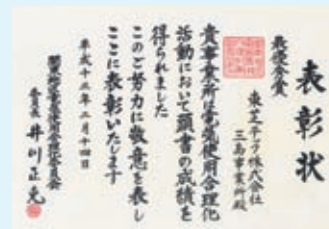 表彰状
最優秀賞
東芝テック株式会社
三島事業所殿
貴事業所は電気使用合理化
活動において頭書の成績を
得られました
このご努力に敬意を表し
ここに表彰いたします
平成十三年二月十四日
委員長 井川正克